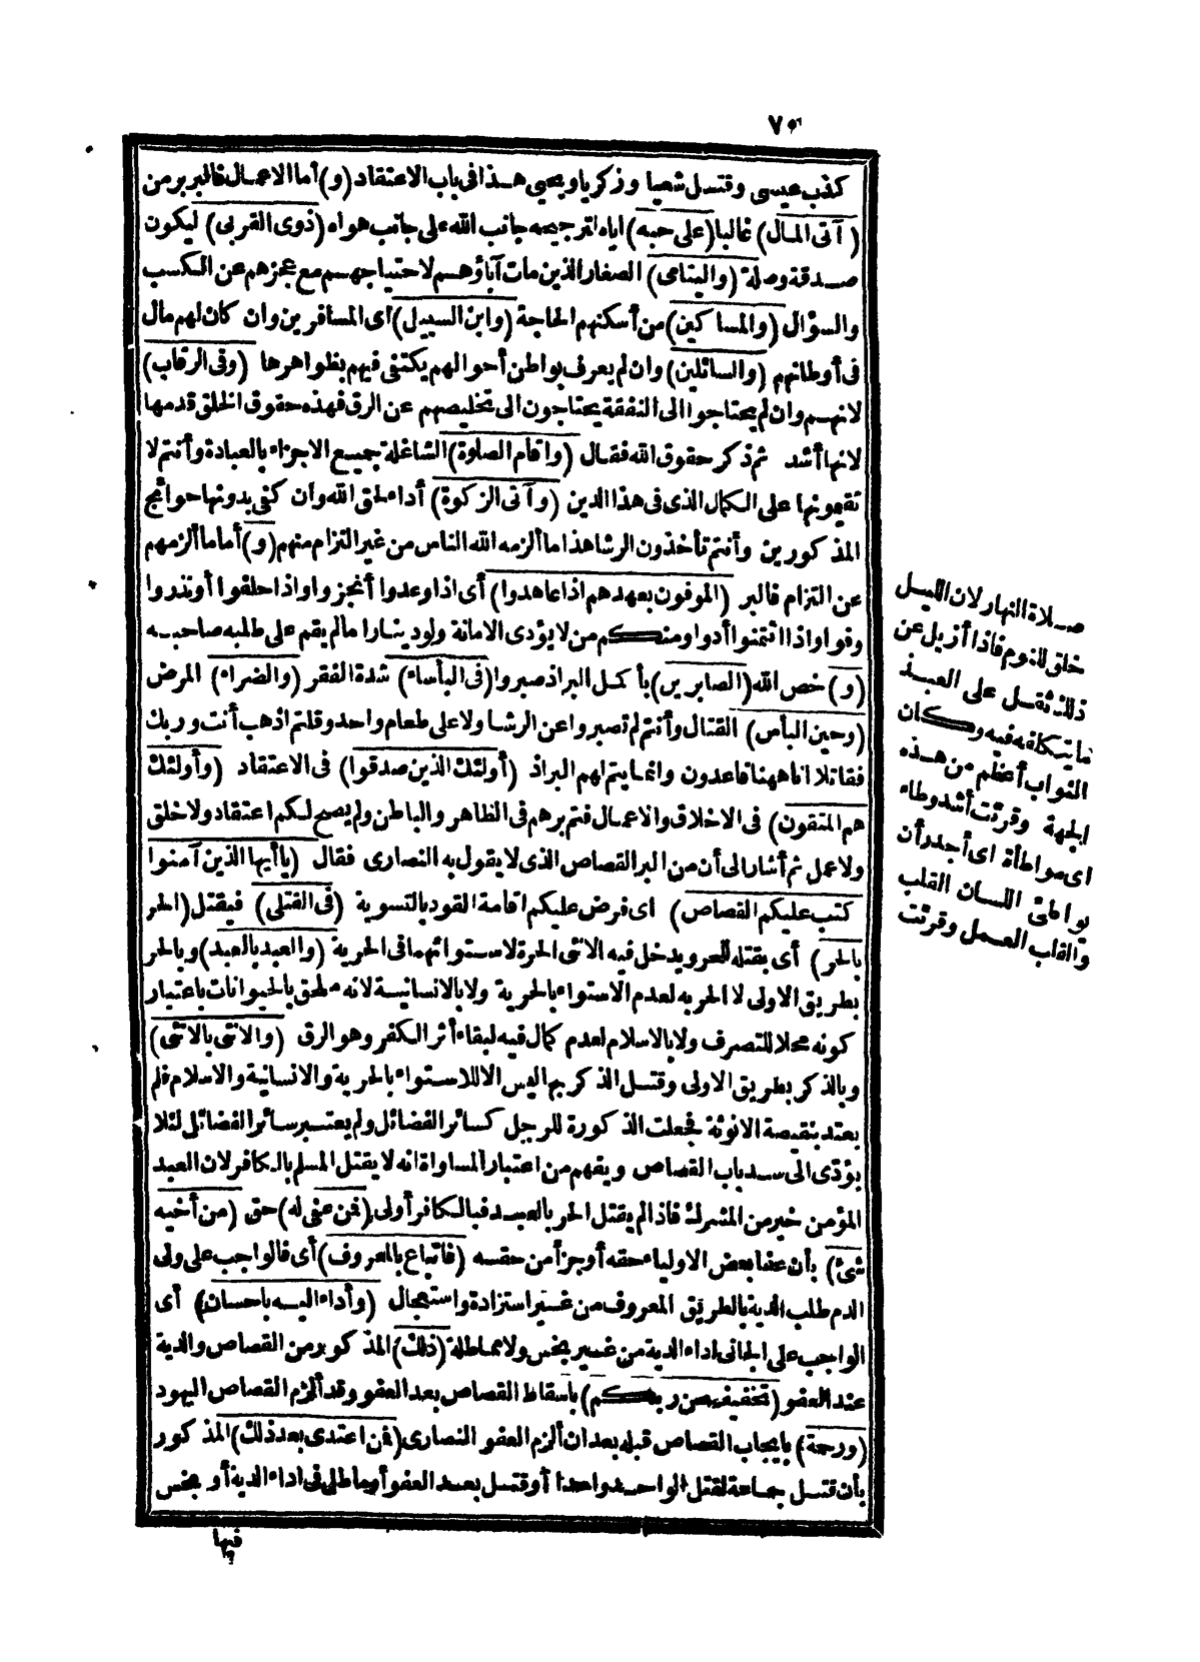 ٧٥
كذب عيسى وقتل شعيا وزكريا ويحيى هذا فى باب الاعتقاد (و) أما الاعمال فالبر بر من
(آتى المال) غالبا (على حبه) اياه لترجيحه جانب الله على جانب هواه (ذوى القربى) ليكون
صدقة وصلة (واليتامى) الصغار الذين مات آباؤهم لاحتياجهم مع عجزهم عن الكسب
والسؤال (والمساكين) من أسكنهم الحاجة (وابن السبيل) اى المسافرين وان كان لهم مال
فى أوطانهم (والسائلين) وان لم يعرف بواطن أحوالهم يكتفى فيهم بظواهرها (وفى الرقاب)
لانهم وان لم يحتاجوا الى النفقة يحتاجون الى تخليصهم عن الرق فهذه حقوق الخلق قدمها
لانها أشد ثم ذكر حقوق الله فقال (واقام الصلوة) الشاغلة جميع الاجزاء بالعبادة وأنتم لا
تقيمونها على الكمال الذى فى هذا الدين (وآتى الزكوة) أداء لحق الله وان كفى بدونها حوائج
المذكورين وأنتم تأخذون الرشا هذا ما ألزمه الله الناس من غير التزام منهم (و) أما ما ألزمهم
عن التزام فالبر (الموفون بعهدهم اذا عاهدوا) أى اذا وعدوا أنجزوا واذا حلفوا أونذروا
وفوا واذا ائتمنوا أدوا ومنكم من لا يؤدى الامانة ولو دينارا مالم يقم على طلبه صاحبه
(و) خص الله (الصابرين) بأكمل البر اذ صبروا (فى البأساء) شدة الفقر (والضراء) المرض
(وحين البأس) القتال وأنتم لم تصبروا عن الرشا ولا على طعام واحد وقلتم اذهب أنت وربك
فقاتلا انا ههنا قاعدون وانما يتم لهم البر اذ (أولئك الذين صدقوا) فى الاعتقاد (وأولئك
هم المتقون) فى الاخلاق والاعمال فتم برهم فى الظاهر والباطن ولم يصح لكم اعتقاد ولا خلق
ولا عمل ثم أشار الى أن من البر القصاص الذى لا يقول به النصارى فقال (يا أيها الذين آمنوا
كتب عليكم القصاص) اى فرض عليكم اقامة القود بالتسوية (فى القتلى) فيقتل (الحر
بالحر) أى بقتله للحر ويدخل فيه الانثى الحرة لاستوائهما فى الحرية (والعبد بالعبد) وبالحر
بطريق الاولى لا الحر به لعدم الاستواء بالحرية ولا بالانسانية لانه ملحق بالحيوانات باعتبار
كونه محلا للتصرف ولا بالاسلام لعدم كمال فيه لبقاء أثر الكفر وهو الرق (والانثى بالانثى)
وبالذكر بطريق الاولى وقتل الذكر بها ليس الا للاستواء بالحرية والانسانية والاسلام فلم
يعتد بنقيصة الانوثة فجعلت الذكورة للرجل كسائر الفضائل ولم يعتبر سائر الفضائل لئلا
يؤدى الى سد باب القصاص ويفهم من اعتبار المساواة انه لا يقتل المسلم بالكافر لان العبد
المؤمن خير من المشرك فاذا لم يقتل الحر بالعبد فبالكافر أولى (فمن عفى له) حق (من أخيه
شئ) بأن عفا بعض الاولياء حقه أو جزأ من حقه (فاتباع بالمعروف) أى فالواجب على ولى
الدم طلب الدية بالطريق المعروف من غير استزادة واستعجال (وأداء اليه باحسان) أى
الواجب على الجانى اداء الدية من غير بخس ولا مماطلة (ذلك) المذكور من القصاص والدية
عند العفو (تخفيف من ربكم) باسقاط القصاص بعد العفو وقد ألزم القصاص اليهود
(ورحمة) بايجاب القصاص قبله بعد ان ألزم العفو النصارى (فمن اعتدى بعد ذلك) المذكور
بأن قتل جماعة لقتل الواحد واحدا أو قتل بعد العفو أو ماطل فى اداء الدية أو بخس
فيها
صلاة النهار لان الليل
خلق للنوم فاذا أزيل عن
ذلك ثقل على العبد
ما يتكلفه فيه وكان
الثواب أعظم من هذه
الجهة وقرئت أشد وطاء
اى مواطأة اى أجدر أن
يواطئ اللسان القلب
والقلب العمل وقرئت